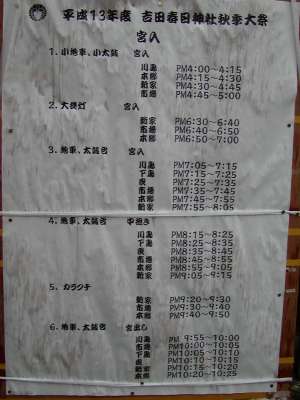 平成13年度 吉田春日神社秋季大祭
宮入
1. 小地車、小太鼓 宮入
川島 PM4:00~4:15
本郷 PM4:15~4:30
新家 PM4:30~4:45
市場 PM4:45~5:00
2. 大提灯 宮入
新家 PM6:30~6:40
市場 PM6:40~6:50
本郷 PM6:50~7:00
3. 地車、太鼓台 宮入
川島 PM7:05~7:15
下島 PM7:15~7:25
PM7:25~7:35
市場 PM7:35~7:45
本郷 PM7:45~7:55
新家 PM7:55~8:05
4. 地車、太鼓台
川島 PM8:15~8:25
下島 PM8:25~8:35
PM8:35~8:45
市場 PM8:45~8:55
本郷 PM8:55~9:05
新家 PM9:05~9:15
5. カラクチ
新家 PM9:20~9:30
市場 PM9:30~9:40
本郷 PM9:40~9:50
6. 地車、太鼓台 宮出し
川島 PM 9:55~10:00
市場 PM10:00~10:05
下島 PM10:05~10:10
PM10:10~10:15
新家 PM10:15~10:20
本郷 PM10:20~10:25